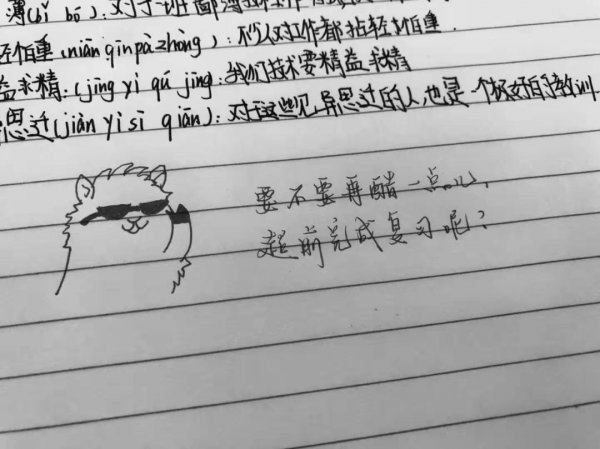 薄(bǐ bó):对于班
轻怕重(niān qīn pà zhòng):不认对工作都拈轻怕重.
益求精:(jīng yì qiú jīng:我们技术要精益求精
思迁(jiàn yì sī qiān):对于这些见异思迁的人,也是一个极好的教训
要不要再酷一点儿,
超前完成复习呢?